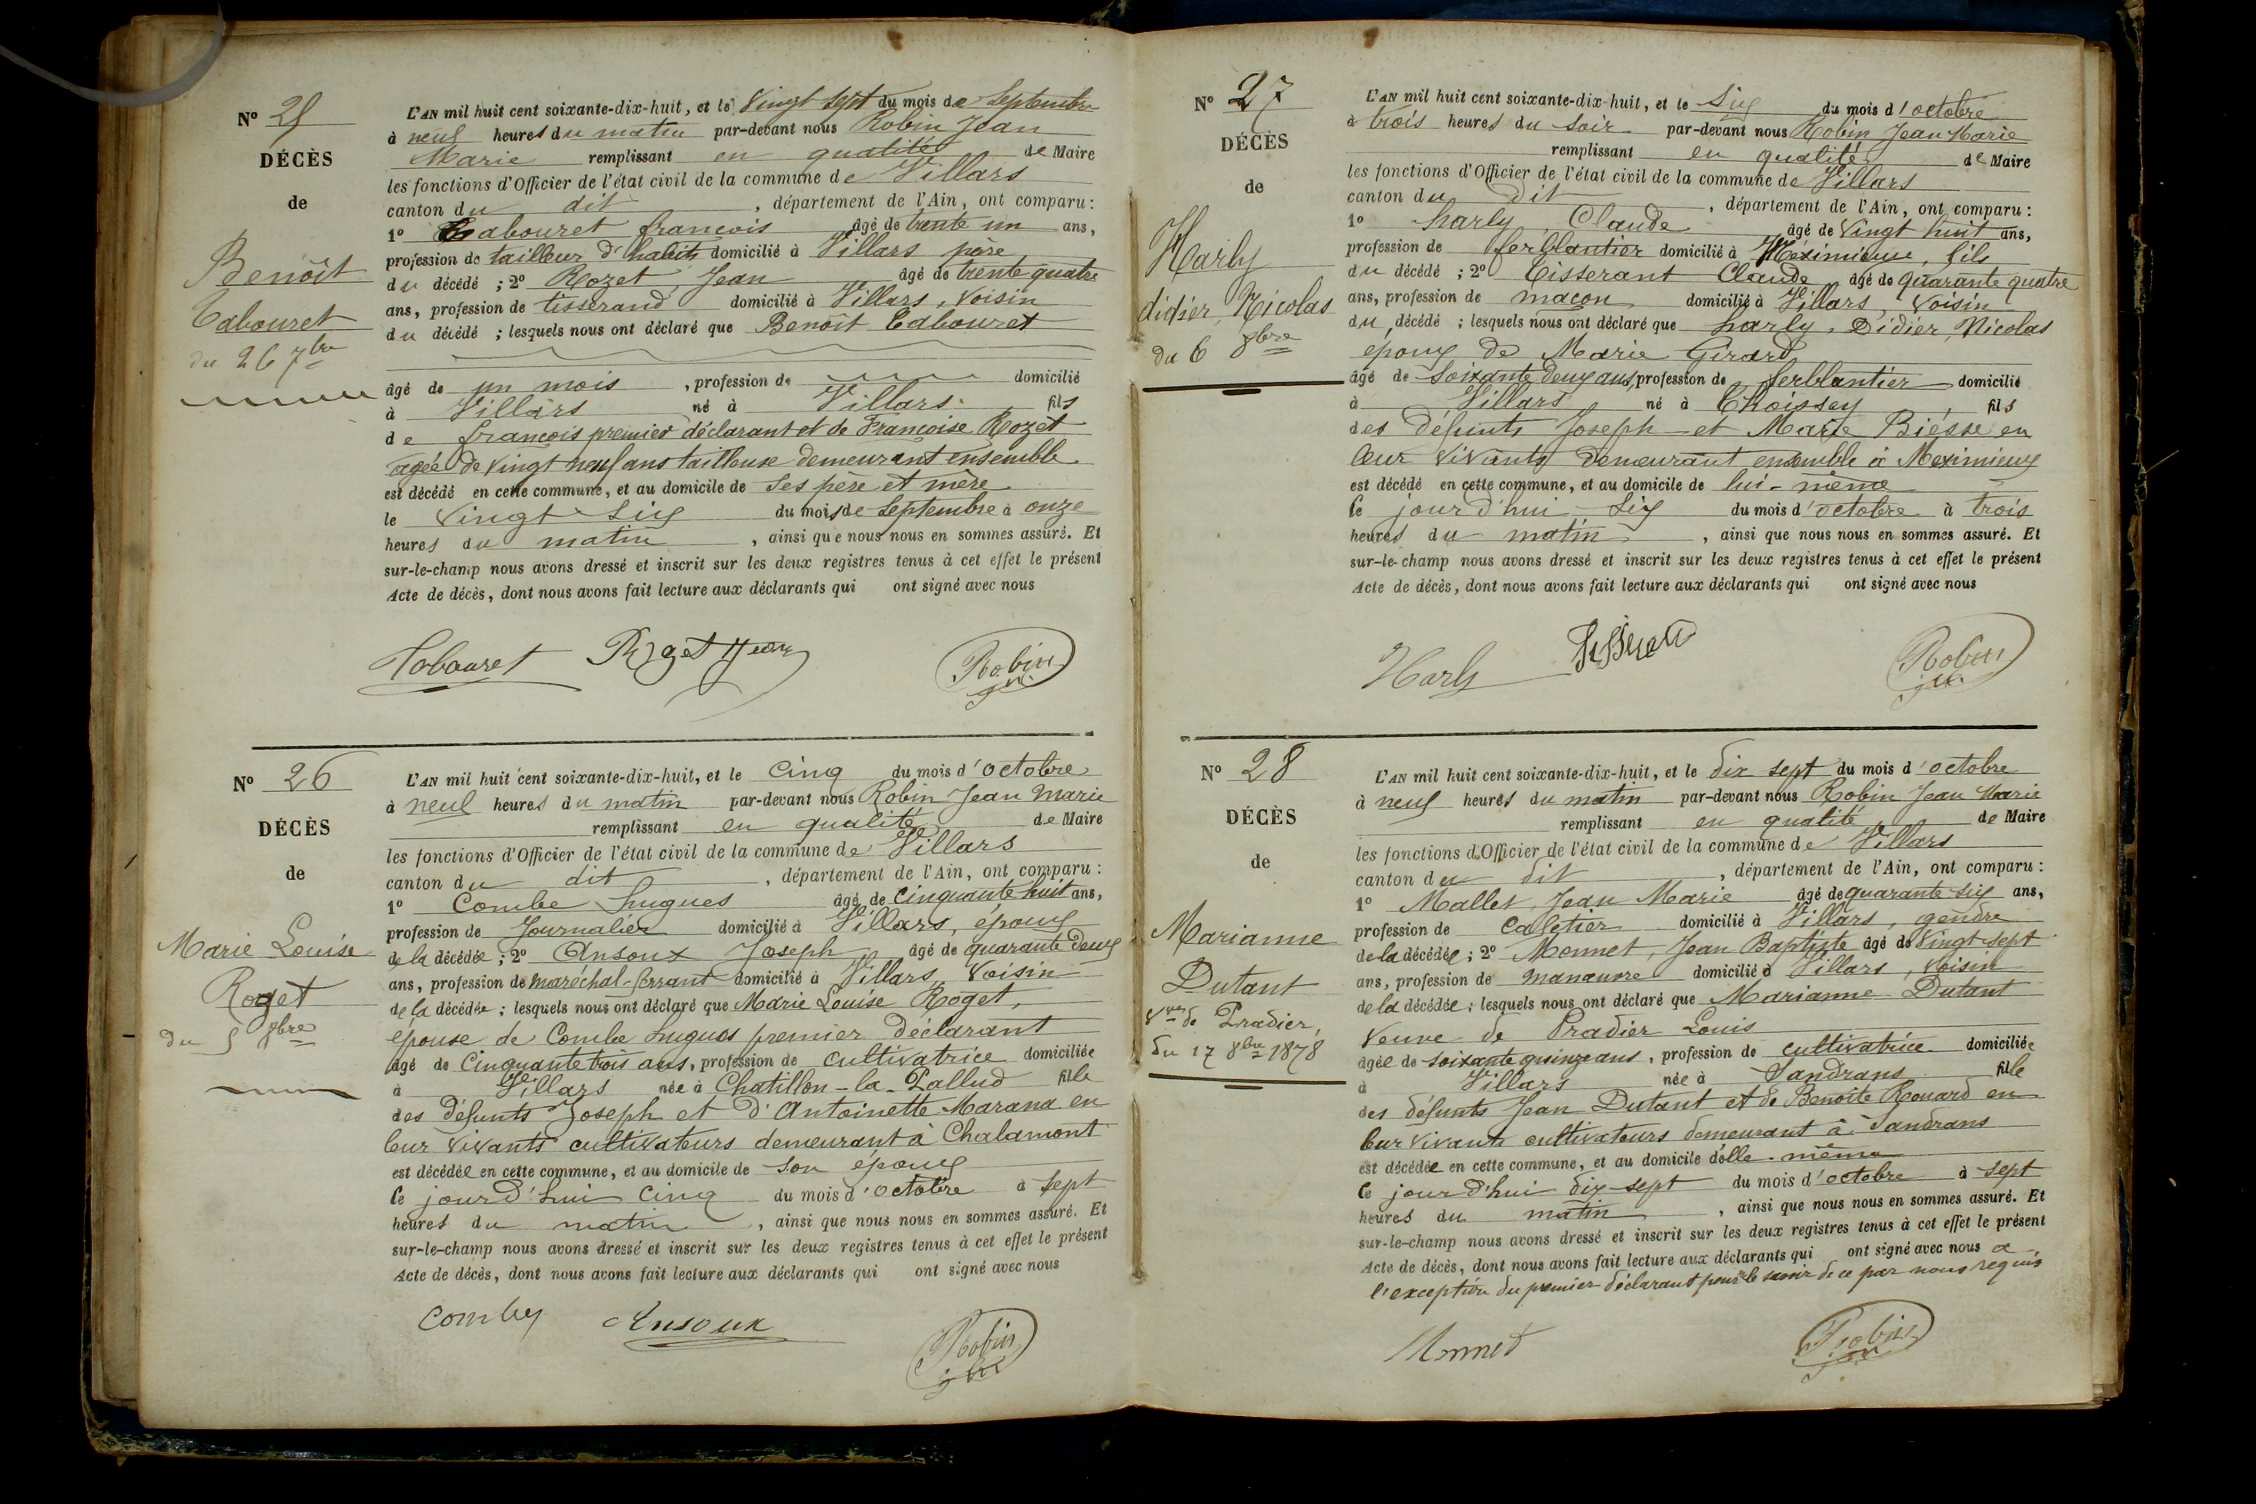 Nº 25
DÉCÈS
de
Benoît
Tabouret
du 26 7bre
L'AN mil huit cent soixante-dix-huit, et le Vingt sept du mois de Septembre
à neuf heures du matin par-devant nous Robin Jean
Marie remplissant en qualité de Maire
les fonctions d'Officier de l'état civil de la commune de Villars
canton du dit, département de l'Ain, ont comparu :
1º Tabouret françois âgé de trente un ans,
profession de tailleur d'habits domicilié à Villars père
du décédé ; 2º Rozet, Jean âgé de trente quatre
ans, profession de tisserand domicilié à Villars, Voisin
du décédé ; lesquels nous ont déclaré que Benoît Tabouret
âgé de un mois, profession de domicilié
à Villars né à Villars. fils
de françois premier déclarant et de Françoise Rozet
agée de vingt neuf ans tailleuse demeurant ensemble
est décédé en cette commune, et au domicile de ses pere et mère
le vingt six du mois de Septembre à onze
heures du matin, ainsi que nous nous en sommes assuré. Et
sur-le-champ nous avons dressé et inscrit sur les deux registres tenus à cet effet le présent
Acte de décès, dont nous avons fait lecture aux déclarants qui ont signé avec nous
Tabouret Rozet Jean Robin
Nº 26
DÉCÈS
de
Marie Louise
Roget
du 5 8bre
L'AN mil huit cent soixante-dix-huit, et le Cinq du mois d'octobre
à neuf heures du matin par-devant nous Robin Jean Marie
remplissant en qualité de Maire
les fonctions d'Officier de l'état civil de la commune de Villars
canton du dit, département de l'Ain, ont comparu :
1º Combe hugues âgé de Cinquante huit ans,
profession de Journalier domicilié à Villars, époux
de la décédée ; 2º Ansoux Joseph âgé de quarante deux
ans, profession de maréchal-ferrant domicilié à Villars, Voisin
de la décédée ; lesquels nous ont déclaré que Marie Louise Roget,
épouse de Combe hugues premier déclarant
âgé de Cinquante trois ans, profession de cultivatrice domiciliée
à Villars née à Chatillon-la-Pallud fille
des défunts Joseph et d'Antoinette Marand en
leur vivants cultivateurs demeurant à Chalamont
est décédée en cette commune, et au domicile de son époux
Ce jourd'hui Cinq du mois d'octobre à sept
heures du matin, ainsi que nous nous en sommes assuré. Et
sur-le-champ nous avons dressé et inscrit sur les deux registres tenus à cet effet le présent
Acte de décès, dont nous avons fait lecture aux déclarants qui ont signé avec nous
Ansoux Robin
Nº 27
DÉCÈS
de
Harly
didier, Nicolas
du 6 8bre
L'AN mil huit cent soixante-dix-huit, et le Six du mois d'octobre
à trois heures du soir par-devant nous Robin Jean Marie
remplissant en qualité de Maire
les fonctions d'Officier de l'état civil de la commune de Villars
canton du dit, département de l'Ain, ont comparu :
1º harly, Claude âgé de Vingt huit ans,
profession de ferblantier domicilié à Meximieux, fils
du décédé ; 2º Tisserant Claude âgé de quarante quatre
ans, profession de maçon domicilié à Villars, Voisin
du décédé ; lesquels nous ont déclaré que harly, Didier, Nicolas
époux de Marie Girard
âgé de soixante deux ans, profession de ferblantier domicilié
à Villars né à Choissey, fils
des défunts Joseph et Marie Biésse en
leur vivants demeurant ensemble à Meximieux
est décédé en cette commune, et au domicile de lui-même
Ce jourd'hui Six du mois d'octobre à trois
heures du matin, ainsi que nous nous en sommes assuré. Et
sur-le-champ nous avons dressé et inscrit sur les deux registres tenus à cet effet le présent
Acte de décès, dont nous avons fait lecture aux déclarants qui ont signé avec nous
Harly Robin
Nº 28
DÉCÈS
de
Marianne
Dutant
Vve de Pradier,
du 17 8bre 1878
L'AN mil huit cent soixante-dix-huit, et le dix sept du mois d'octobre
à neuf heures du matin par-devant nous Robin Jean Marie
remplissant en qualité de Maire
les fonctions d'Officier de l'état civil de la commune de Villars
canton du dit, département de l'Ain, ont comparu :
1º Mallet, Jean Marie âgé de quarante six ans,
profession de cafetier domicilié à Villars, gendre
de la décédée ; 2º Monnet, Jean Baptiste âgé de Vingt sept
ans, profession de manœuvre domicilié à Villars, Voisin
de la décédée ; lesquels nous ont déclaré que Marianne Dutant
Veuve de Pradier Louis
âgée de soixante quinze ans, profession de cultivatrice domiciliée
à Villars née à Sandrans fille
des défunts Jean Dutant et de Benoîte Renard en
leur vivants cultivateurs demeurant à Sandrans
est décédée en cette commune, et au domicile d'elle-même
Ce jourd'hui dix sept du mois d'octobre à sept
heures du matin, ainsi que nous nous en sommes assuré. Et
sur-le-champ nous avons dressé et inscrit sur les deux registres tenus à cet effet le présent
Acte de décès, dont nous avons fait lecture aux déclarants qui ont signé avec nous a
l'exception du premier déclarant pour le savoir de ce par nous requis
Monnet Robin